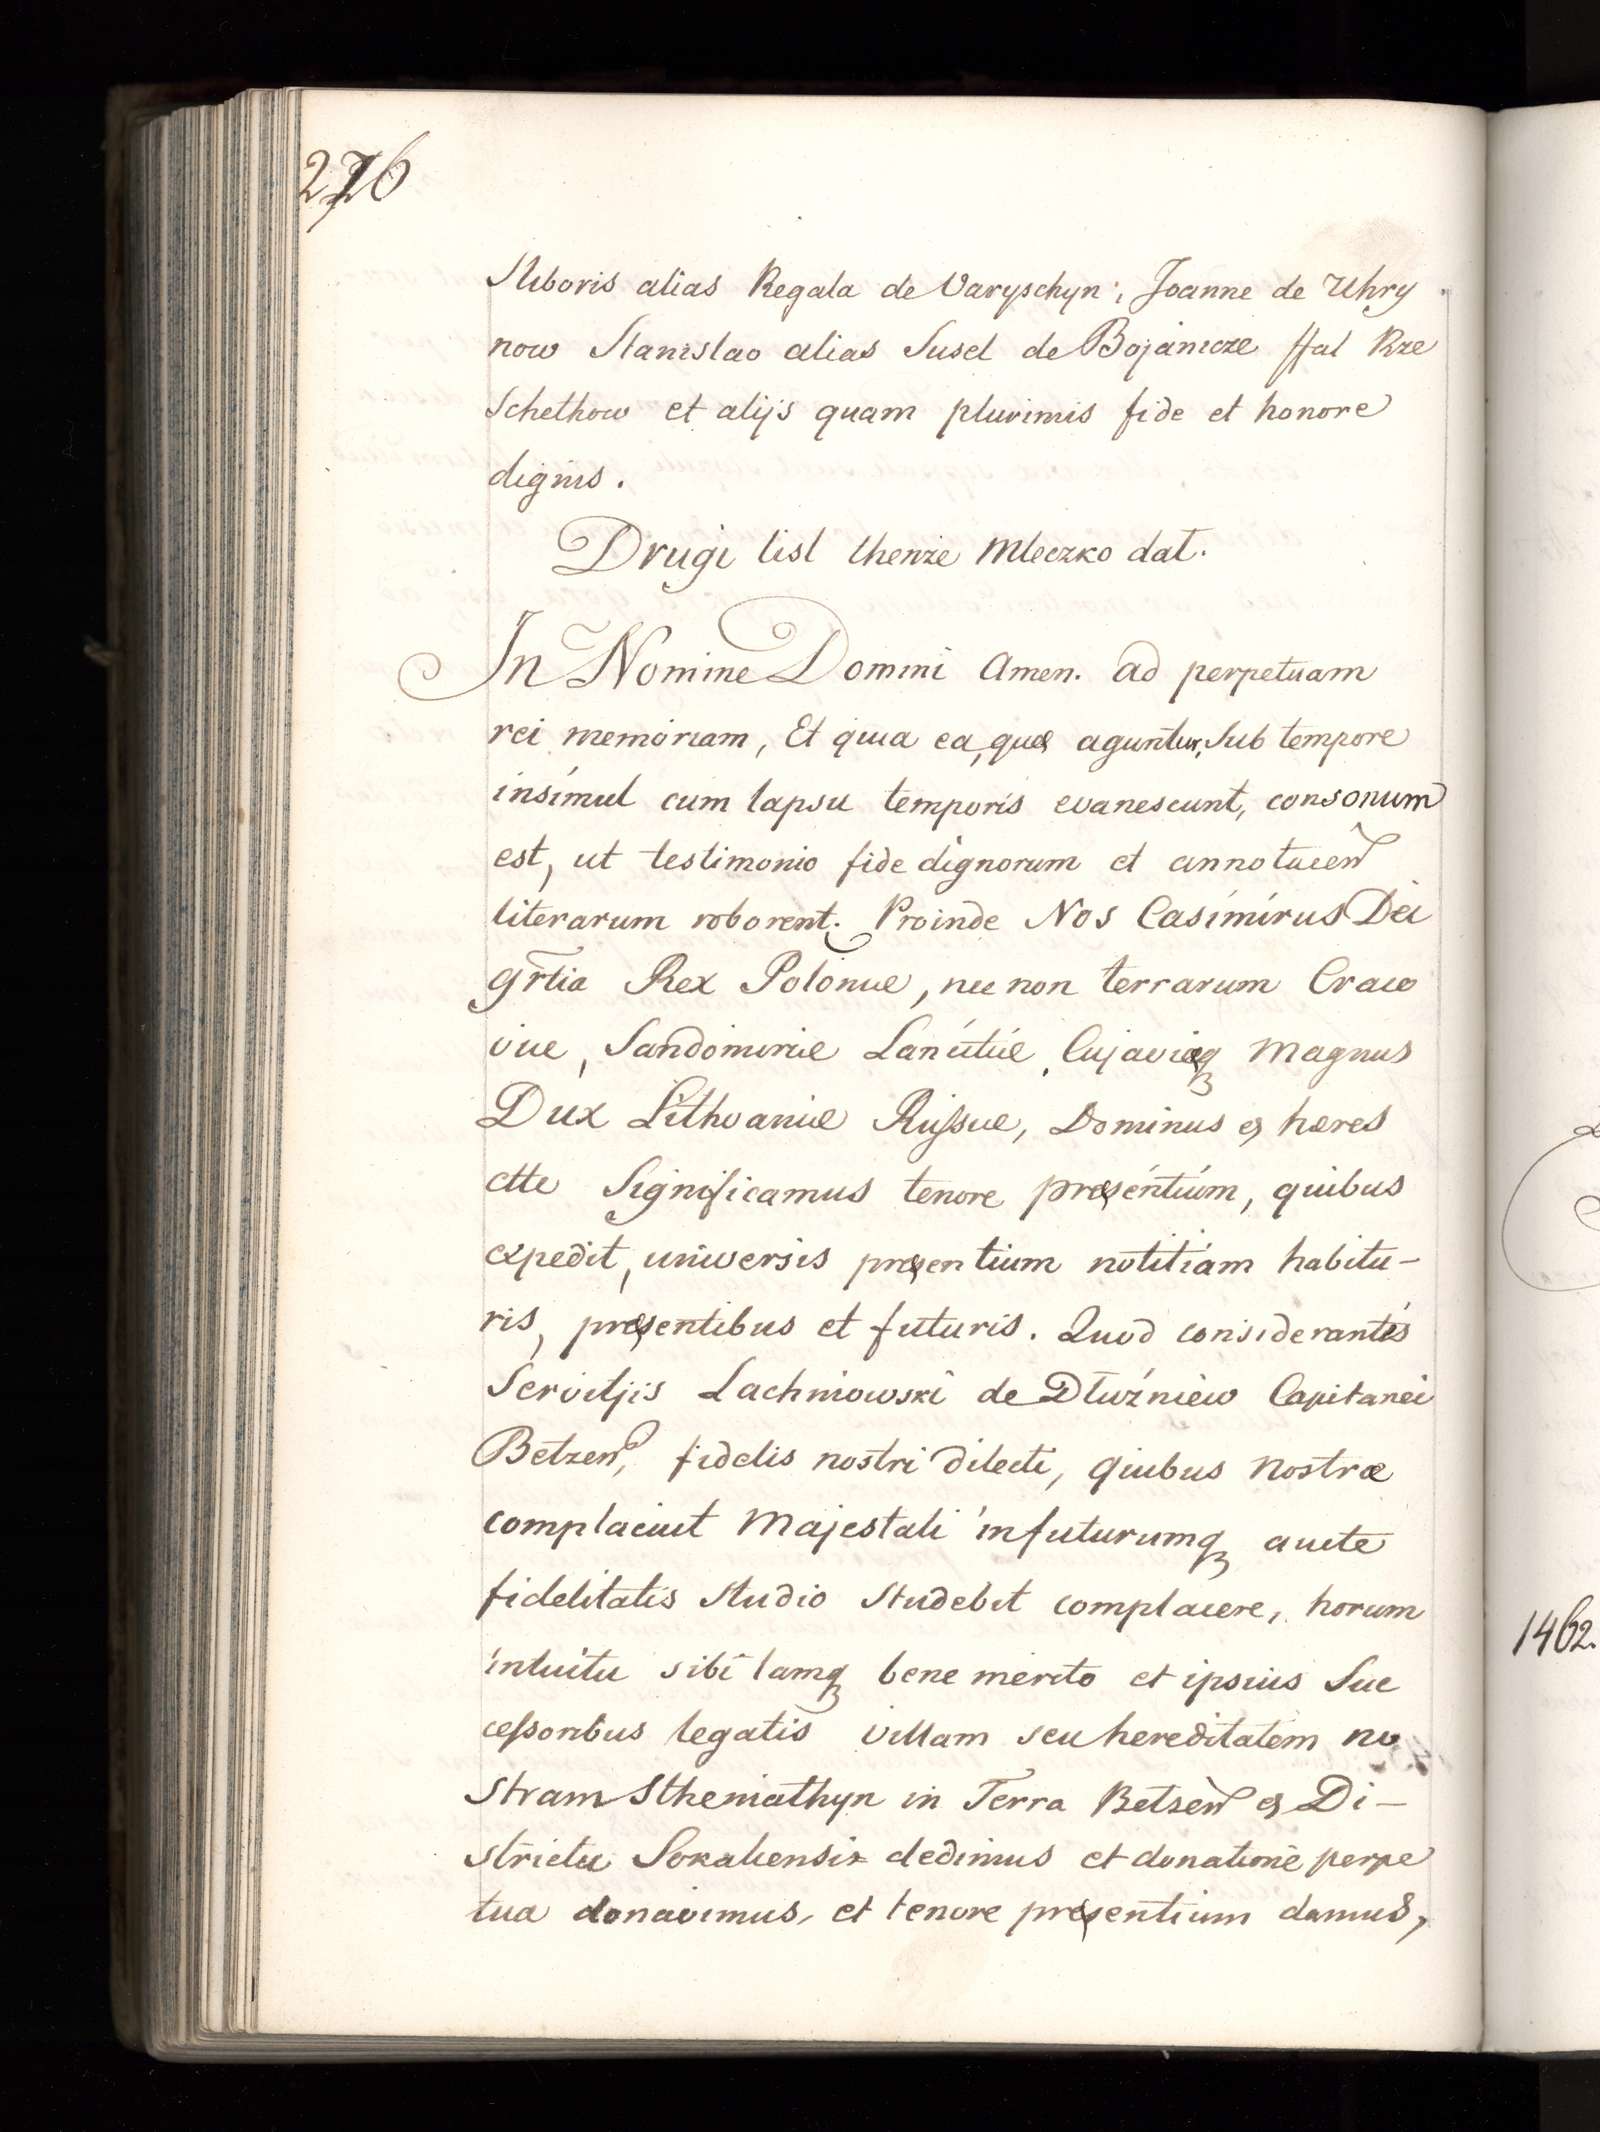 276
Stiboris alias Regala de Varyschyn; Joanne de Uhry
now Stanislao alias Susel de Bojanicze ffal Rze
schethow et alijs quam plurimis fide et honore
dignis.
Drugi list thenże Mleczko dat.
In Nomine Domini Amen. ad perpetuam
rei memoriam, Et quia ea, quæ aguntur, sub tempore
insimul cum lapsu temporis evanescunt, consonum
est, ut testimonio fide dignorum et annotacen̄
literarum roborent. Proinde Nos Casimirus Dei
gr̄tia Rex Poloniæ, nec non terrarum Craco
viæ, Sandomiriæ Lancitiæ, Cujaviæq Magnus
Dux Lithvaniæ Russiæ, Dominus & hæres
ettc Significamus tenore præsentium, quibus
expedit, universis præsentium notitiam habitu-
ris, præsentibus et futuris. Quod considerantes
Servitijs Lachniowski de Dłużniew Capitanei
Betzen, fidelis nostri dilecti, quibus nostræ
complacuit Majestati in futurumq aucte
fidelitatis studio studebit complacere, horum
intuitu sibi tamq bene merito et ipsius Suc
cessoribus legatis villam seu hereditatem no
stram Stheniathyn in Terra Betzen̄ & Di-
strictu Sokaliensis dedimus et donatione perpe
tua donavimus, et tenore præsentium damus,
1462.